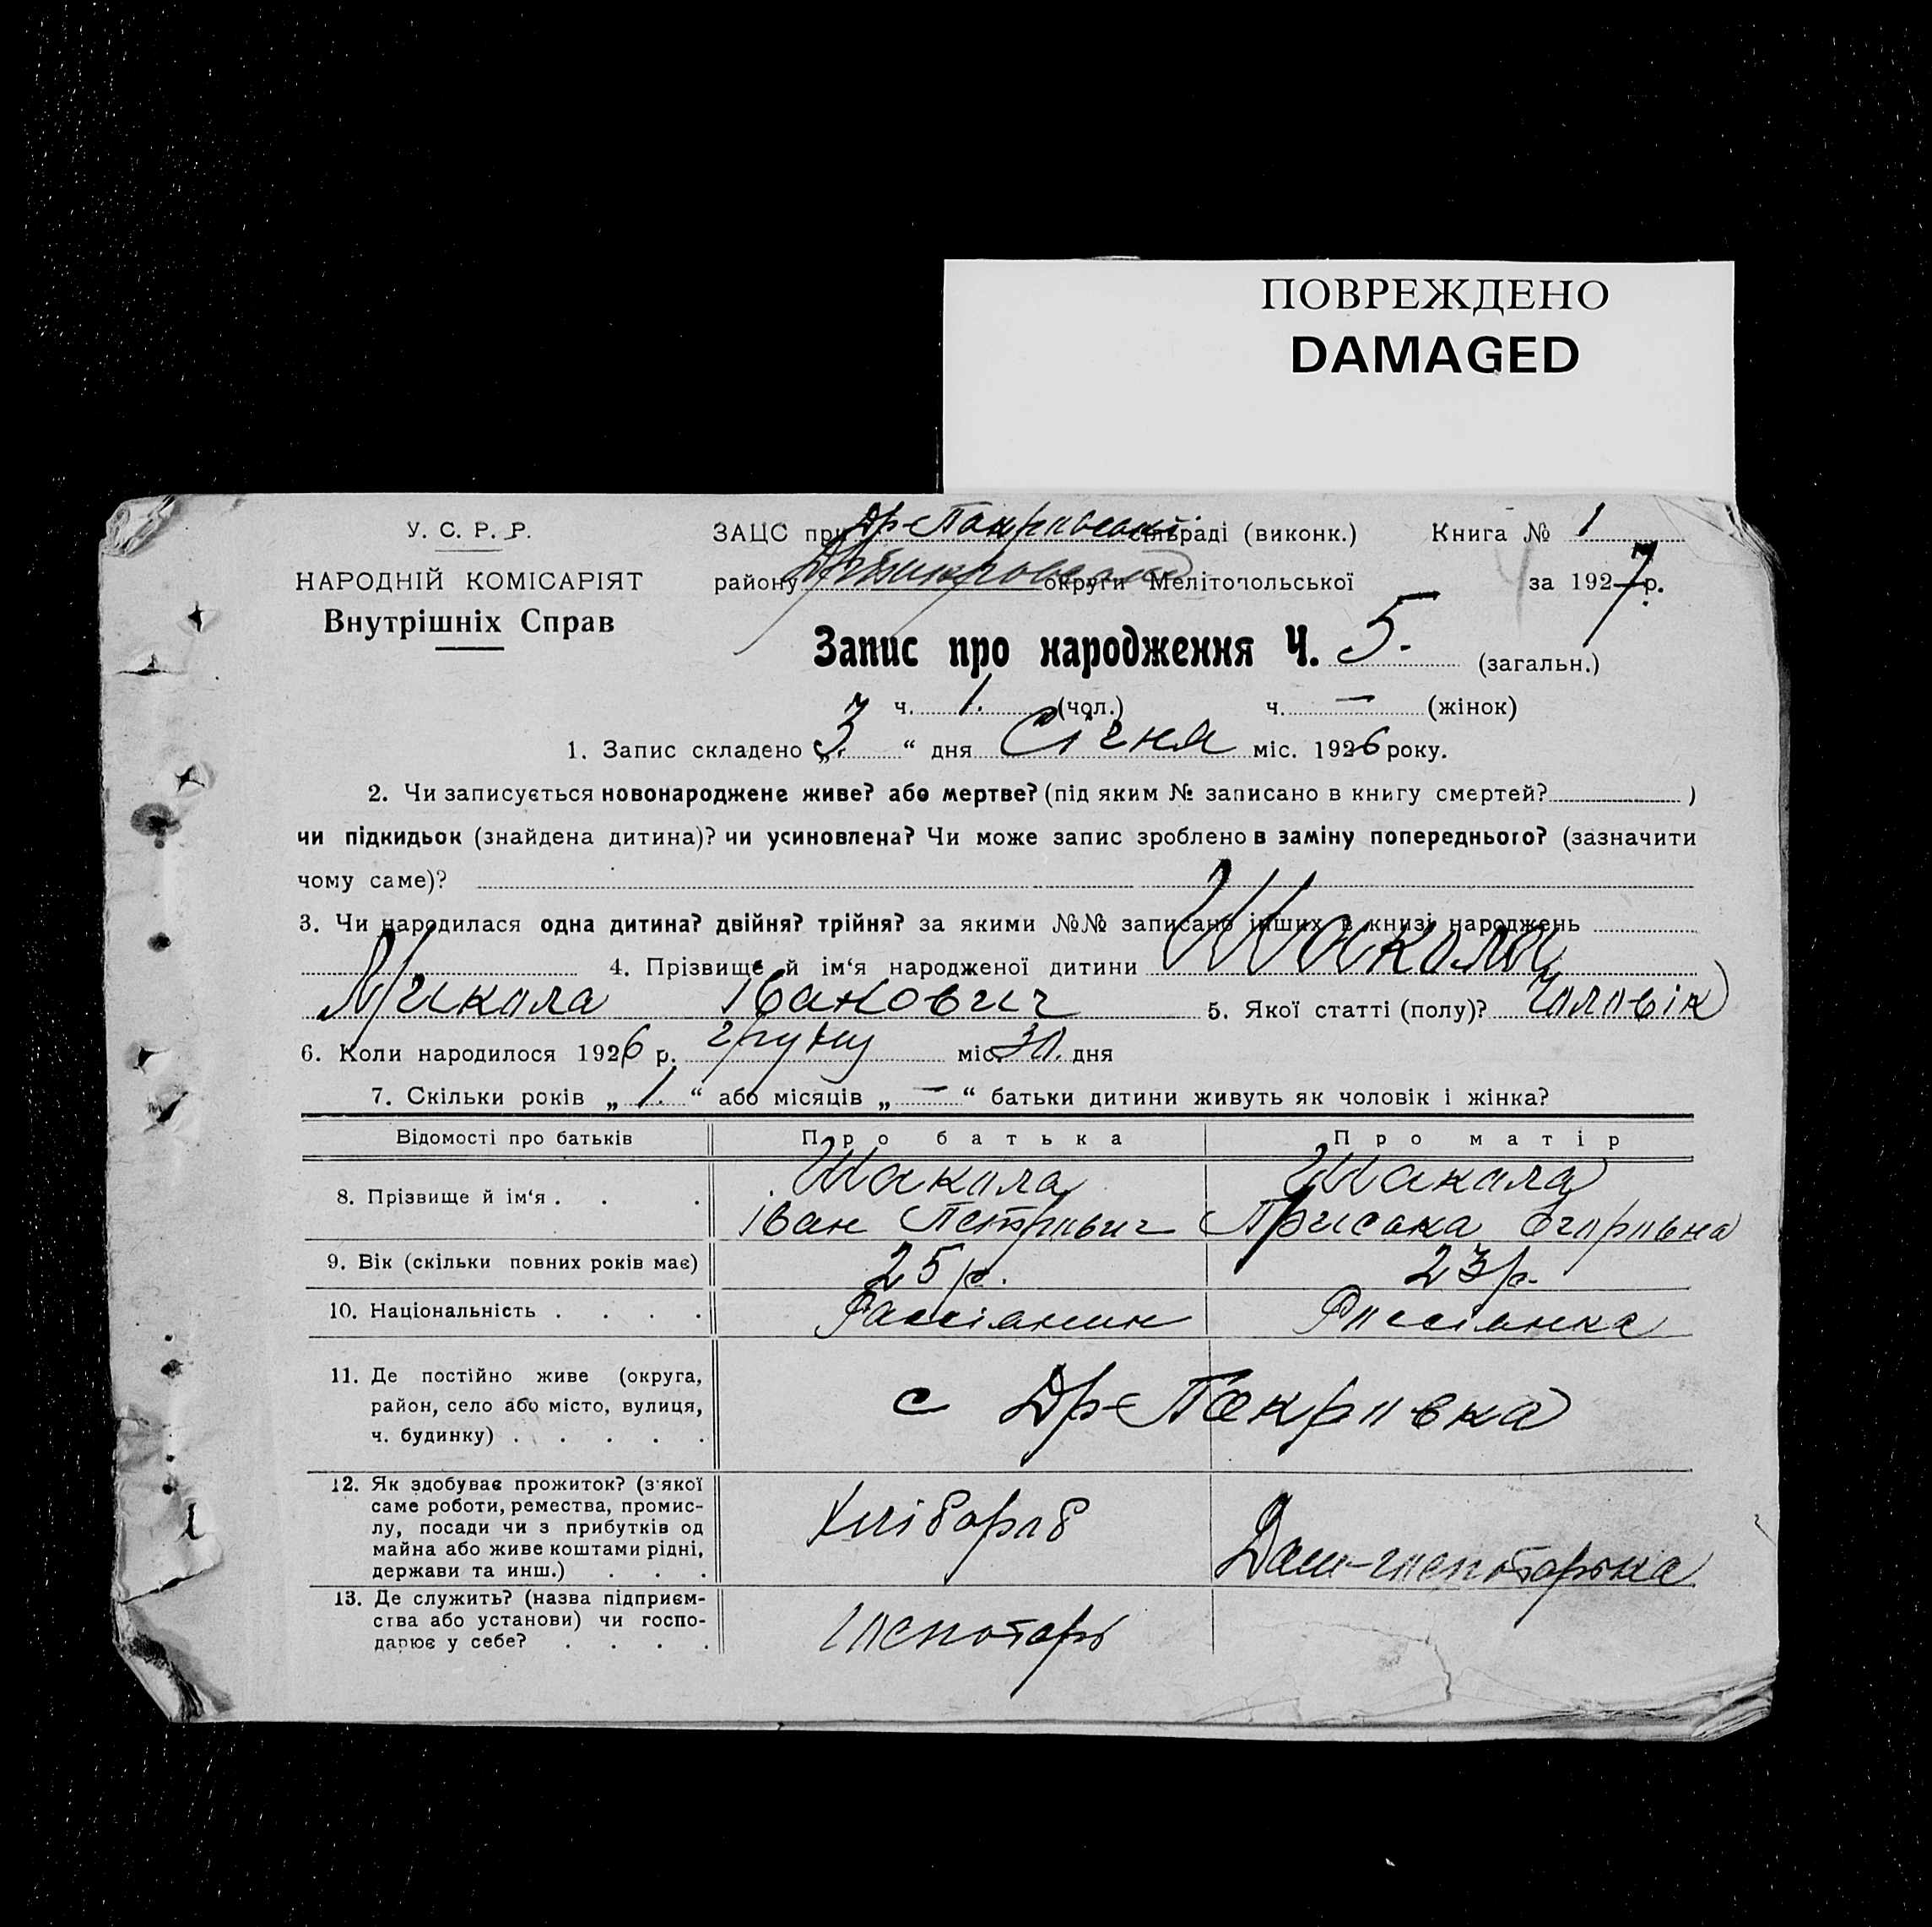 ПОВРЕЖДЕНО
DAMAGED
У. С. Р. Р.
НАРОДНІЙ КОМІСАРІЯТ
Внутрішніх Справ
ЗАЦС при Др-Покрівській сільраді (виконк.) Книга № 1
району округи Мелітопольської за 1927 р.
Запис про народження Ч. 5. (загальн.)
ч. 1. (чол.) ч. — (жінок)
1. Запис складено „3“ дня Січня міс. 1926 року.
2. Чи записується новонароджене живе? або мертве? (під яким № записано в книгу смертей? )
чи підкидьок (знайдена дитина)? чи усиновлена? Чи може запис зроблено в заміну попереднього? (зазначити
чому саме)?
3. Чи народилася одна дитина? двійня? трійня? за якими №№ записано інших в книзі народжень
4. Прізвище й ім‘я народженої дитини Шакола
Микола Іванович 5. Якої статті (полу)? Чоловік
6. Коли народилося 1926 р. грудну міс. 30. дня
7. Скільки років „1.“ або місяців „—“ батьки дитини живуть як чоловік і жінка?
Відомості про батьків Про батька Про матір
8. Прізвище й ім‘я . . . Шакола Шакола
Іван Петрович Приська Єгорівна
9. Вік (скільки повних років має) 25 р. 23 р.
10. Національність . . . . Рассіянин Россіянка
11. Де постійно живе (округа,
район, село або місто, вулиця,
ч. будинку) . . . . . с Др-Покрівка
12. Як здобуває прожиток? (з якої
саме роботи, ремества, промис-
лу, посади чи з прибутків од
майна або живе коштами рідні,
держави та инш.) . . . Хлібороб Дом-господарька
13. Де служить? (назва підприєм-
ства або установи) чи госпо-
дарює у себе? . . . . господарь